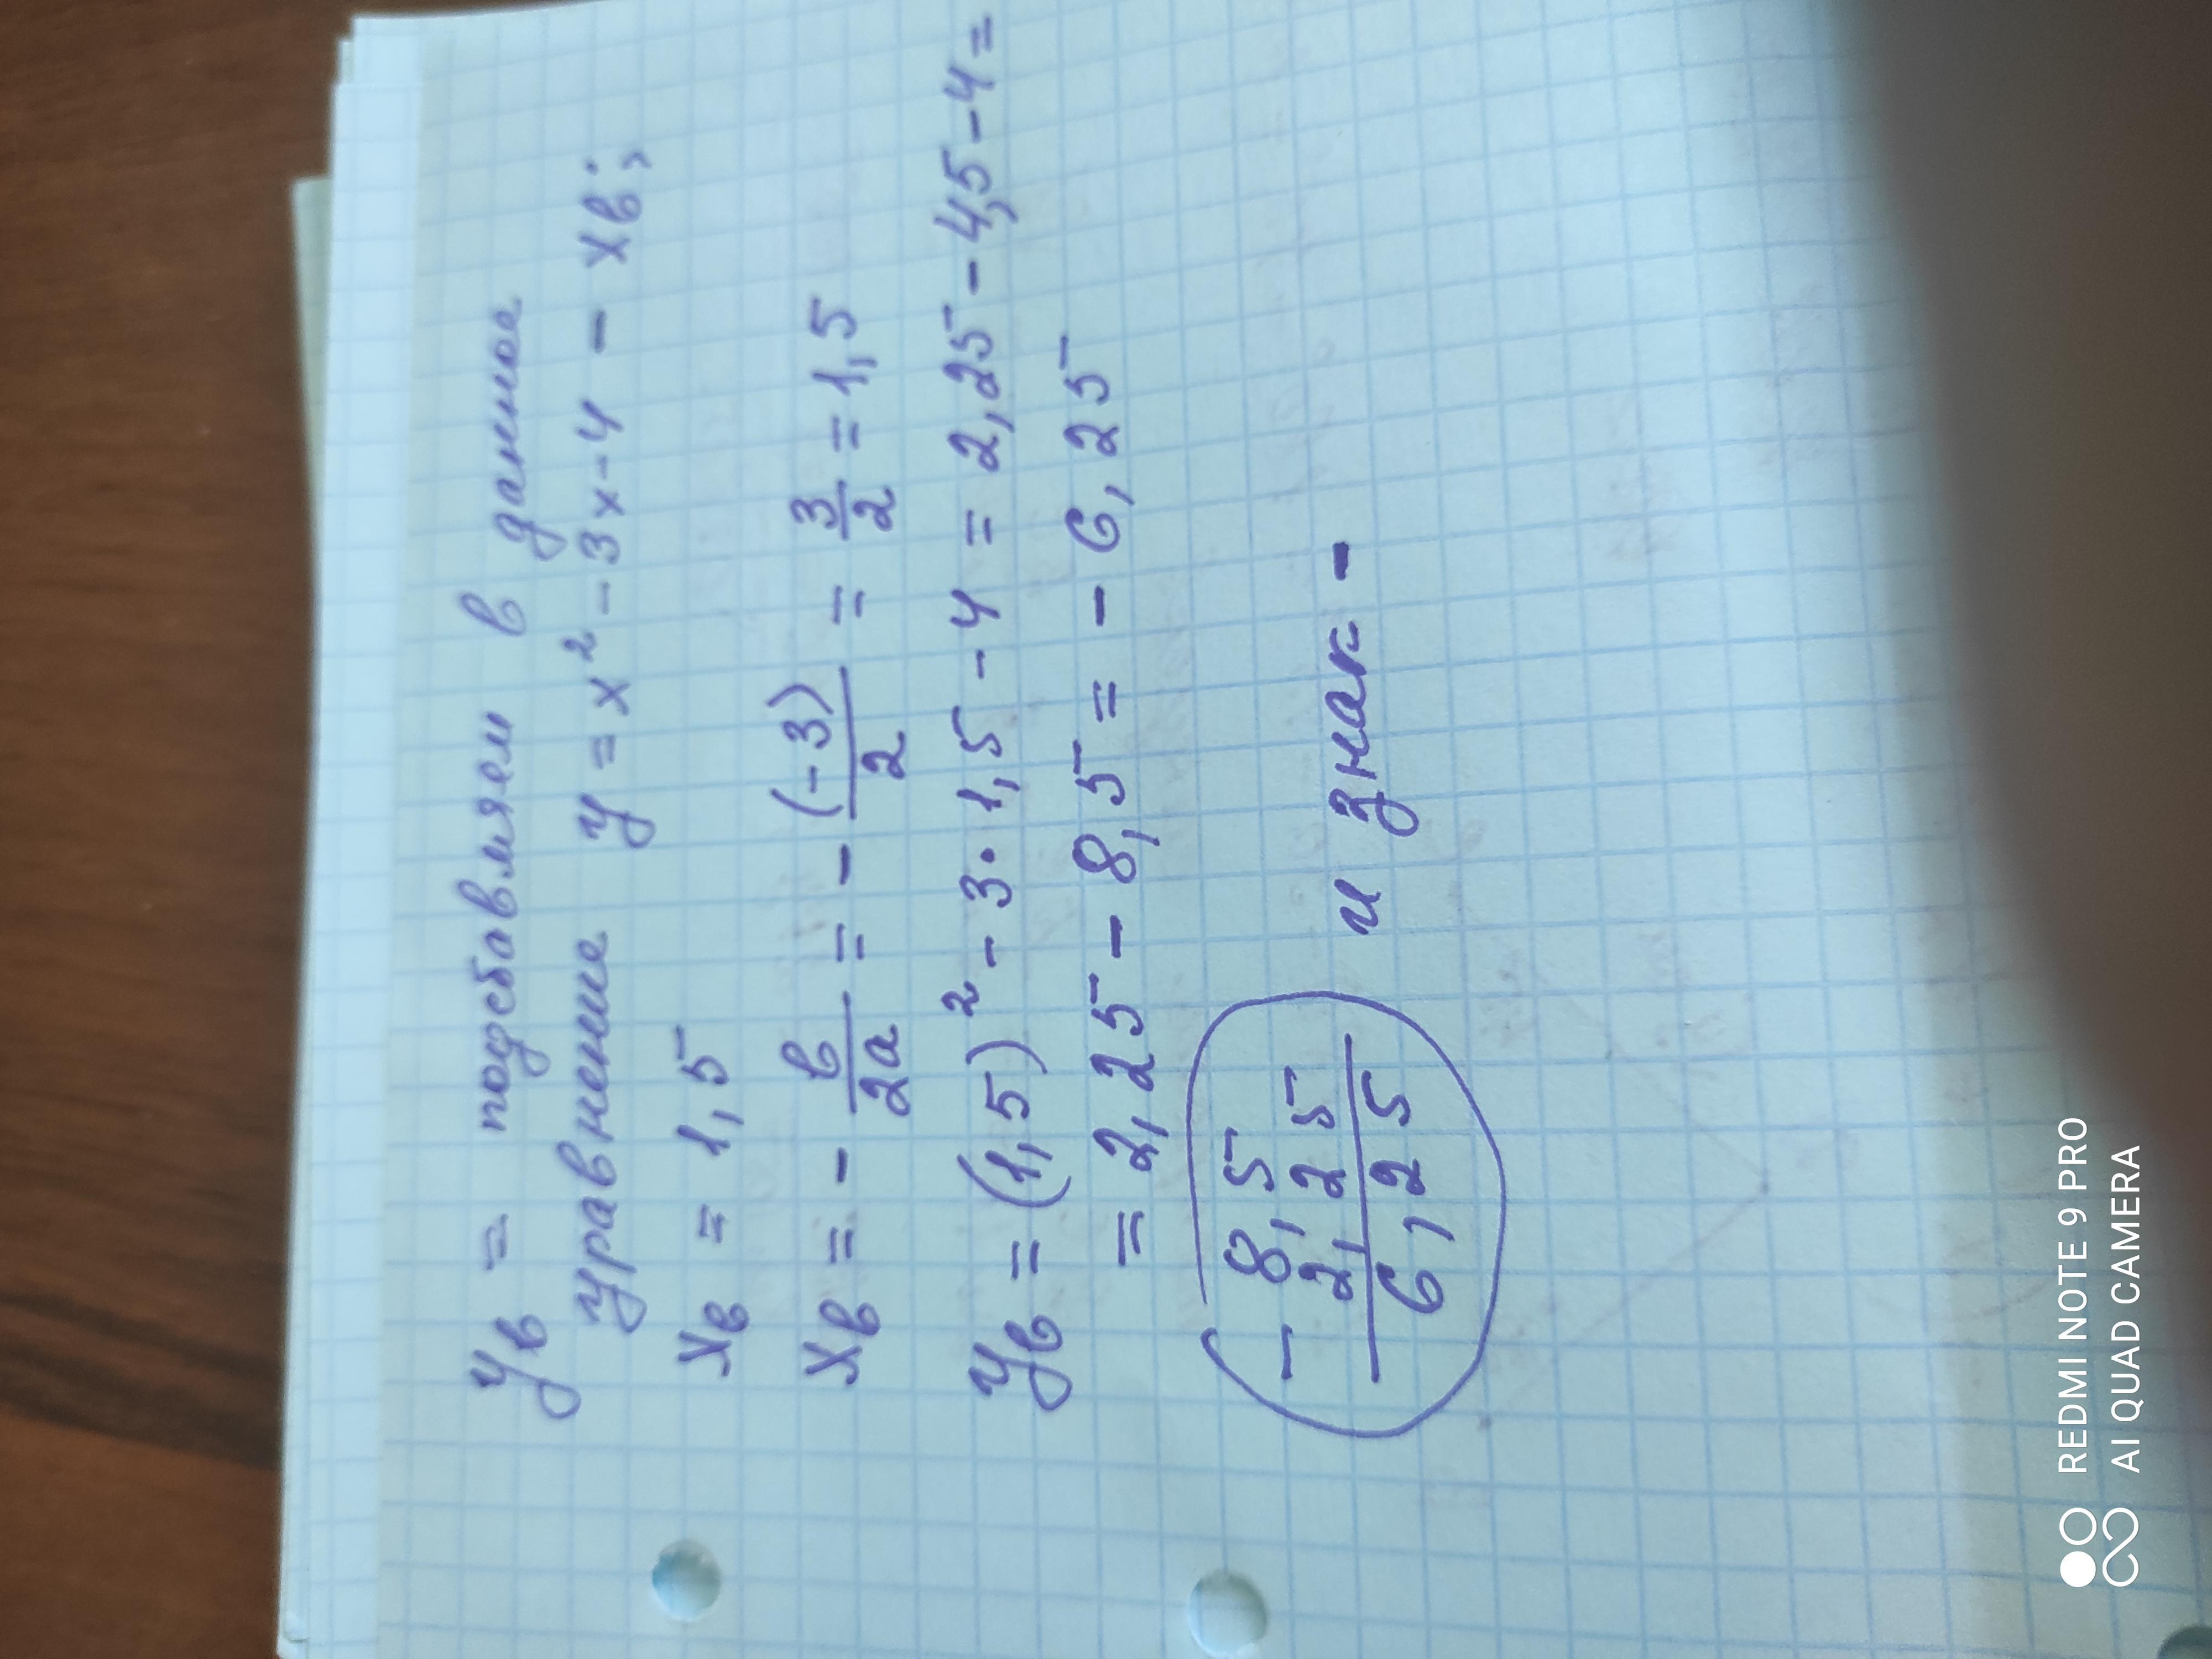 yв = подставляем в данное
уравнение y = x² - 3x - 4 - xв;
xв = 1,5
xв = - в/2a = - (-3)/2 = 3/2 = 1,5
yв = (1,5)² - 3·1,5 - 4 = 2,25 - 4,5 - 4 =
= 2,25 - 8,5 = - 6,25
- 8,5
2,25
6,25
и знак -
REDMI NOTE 9 PRO
AI QUAD CAMERA